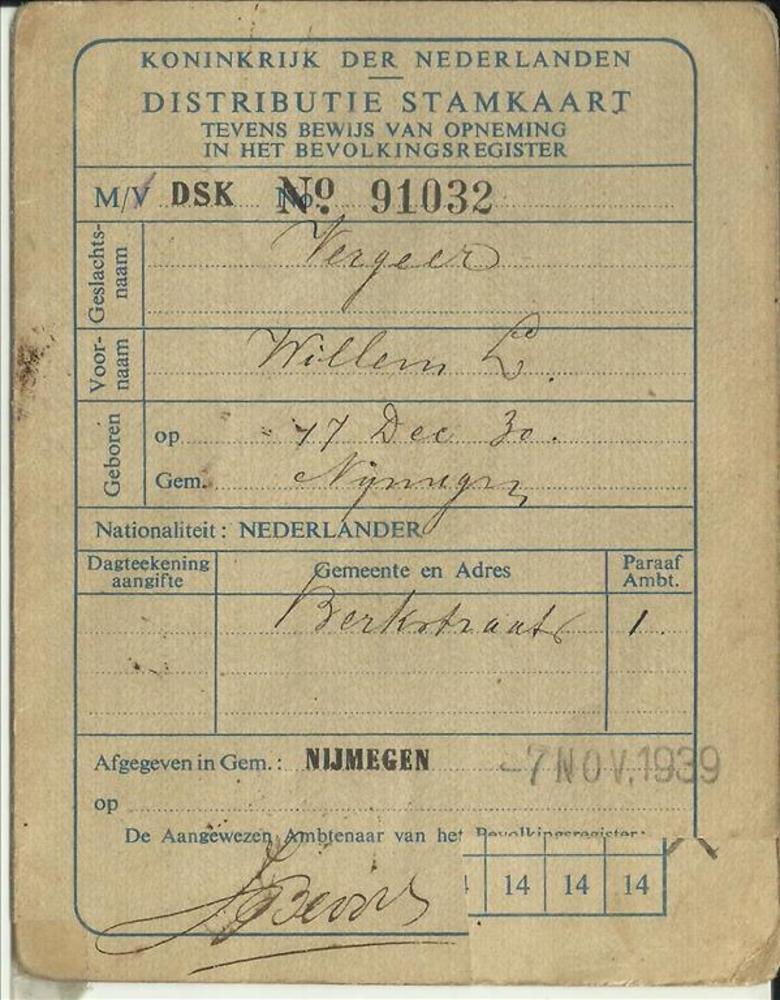 KONINKRIJK DER NEDERLANDEN
DISTRIBUTIE STAMKAART
TEVENS BEWIJS VAN OPNEMING
IN HET BEVOLKINGSREGISTER
M/V DSK No. Nº 91032
Geslachts-
naam
Vergeer
Voor-
naam
Willem L.
Geboren
op 17 Dec 30.
Gem. Nijmegen
Nationaliteit: NEDERLANDER
Dagteekening
aangifte
Gemeente en Adres
Paraaf
Ambt.
Berkstraat 61.
Afgegeven in Gem.: NIJMEGEN
-7 NOV. 1939
op
De Aangewezen Ambtenaar van het Bevolkingsregister:
14 14 14